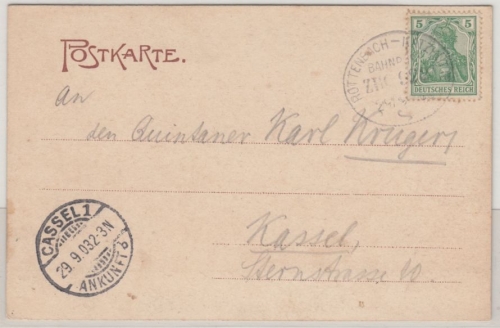 POSTKARTE.
5 5
DEUTSCHES REICH
ROTTENBACH -
BAHNP
ZUG
An
den Quintaner Karl Krüger
Kassel,
Sternstrasse 20.
CASSEL 1
29.9.03.2-3N
ANKUNFT b